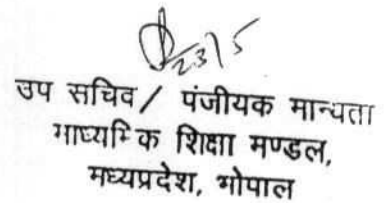 23/5
उप सचिव/ पंजीयक मान्यता
माध्यमिक शिक्षा मण्डल,
मध्यप्रदेश, भोपाल